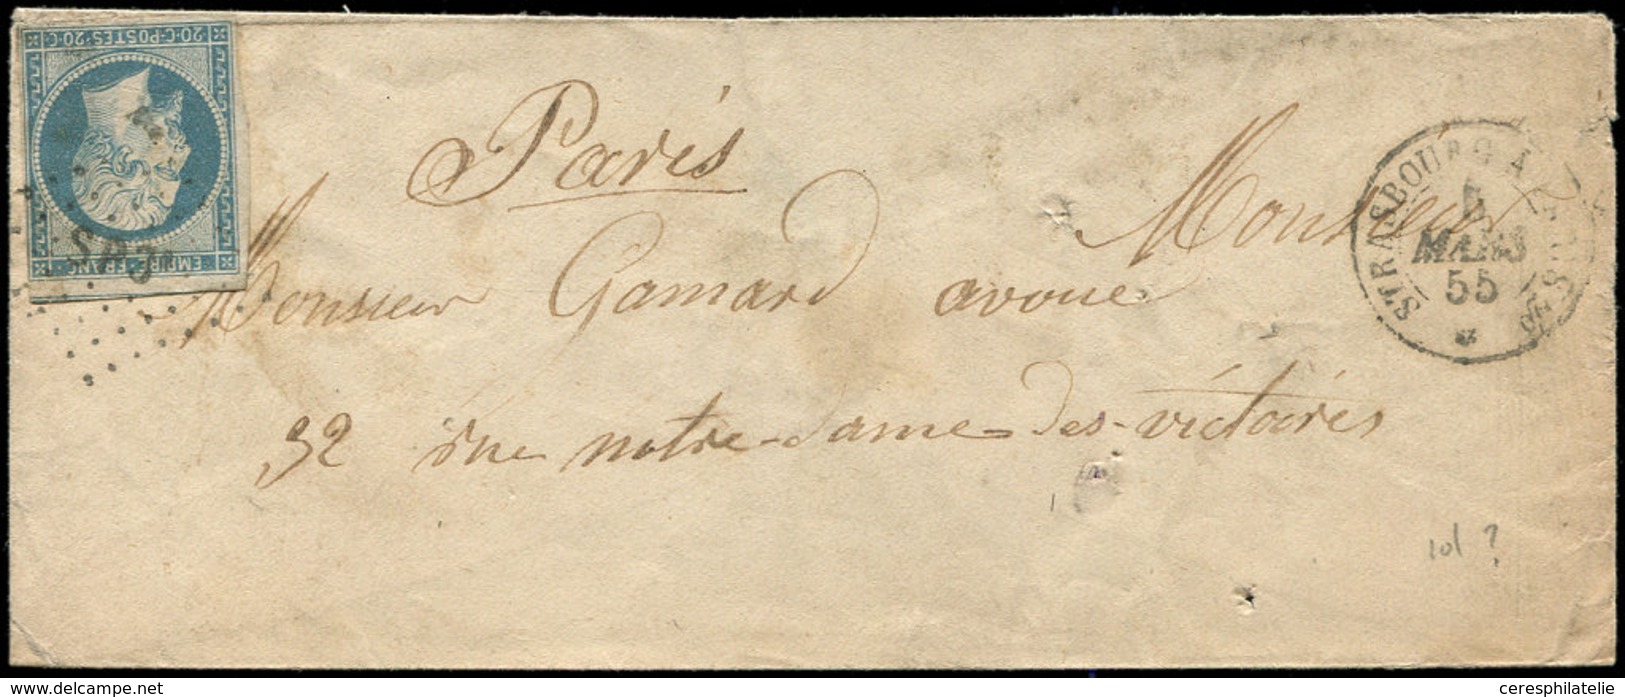 20·C·POSTES·20·C
EMPIRE FRANC
Paris
Monsieur
STRASBOURG A
MARS
55
Monsieur Gamard avoué
32 rue notre-dame-des-victoires
101 ?
delcampe.net
ceresphilatelie